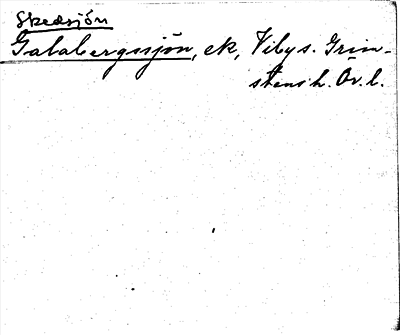 Skedsjön
Galabergssjön, ek, Viby s. Grim-
stens h. Ör. l.